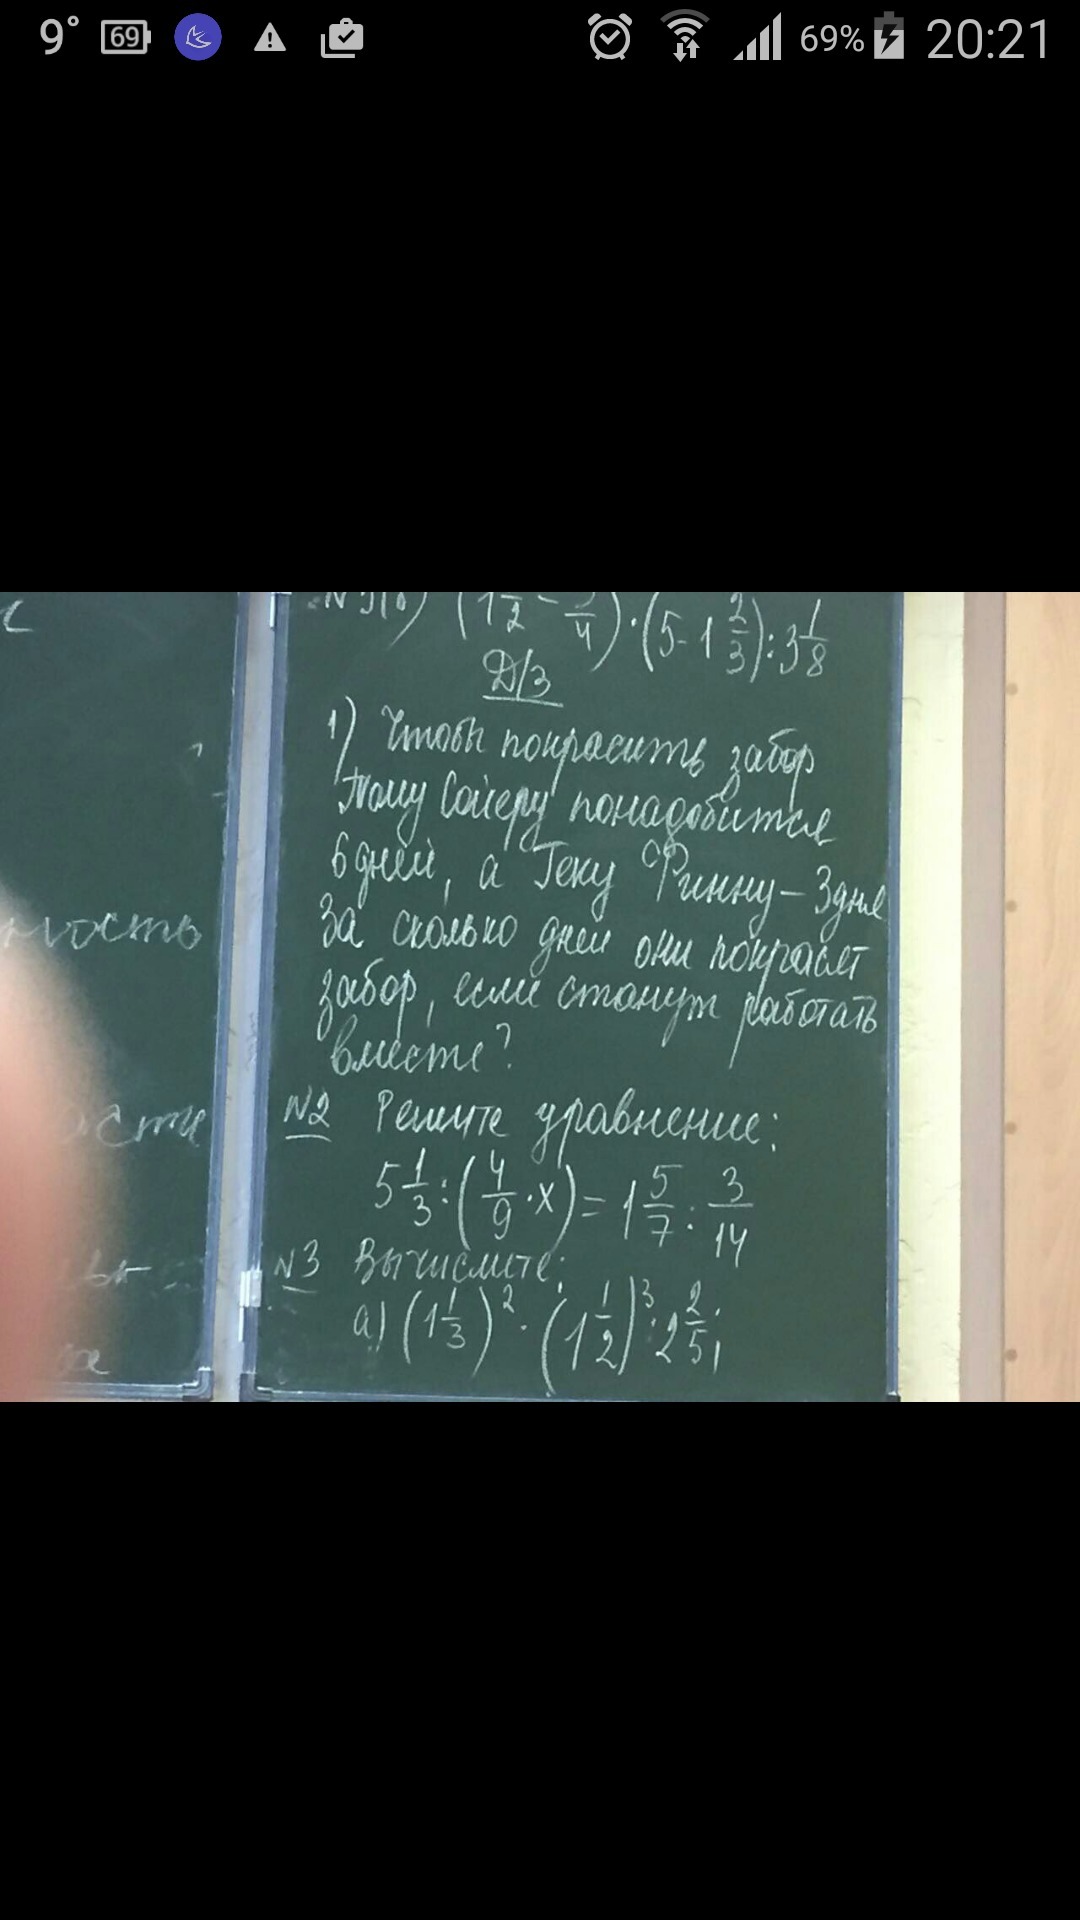 9° 69 69% 20:21
(1 1/2 - 3/4) · (5 - 1 2/3) : 3 1/8
Д/З
1) Чтобы покрасить забор
Тому Сойеру понадобится
6 дней, а Геку Финну – 3 дня
За сколько дней они покрасят
забор, если станут работать
вместе?
N2 Решите уравнение:
5 1/3 : (4/9 · x) = 1 5/7 : 3/14
N3 Вычислите:
а) (1 1/3)² · (1 1/2)³ : 2 2/5;